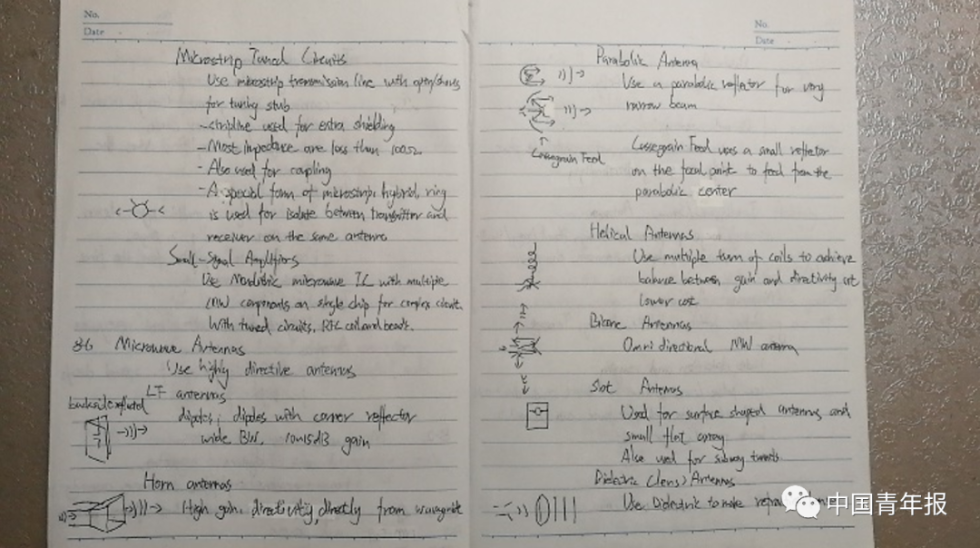 No.
Date
Microstrip Tuned Circuits
Use microstrip transmission line with open/shorts
for tuning stub
- stripline used for extra shielding
- Most impedance are less than 100Ω
- Also used for coupling
- A special form of microstrip, hybrid ring
is used for isolate between transmitter and
receiver on the same antenna
Small-Signal Amplifiers
Use Monolithic microwave IC with multiple
MW components on single chip for complex circuit.
With tuned circuits, RFC coil and beads.
8.6 Microwave Antennas
Use highly directive antennas
LF antennas
backside
dipoles; dipoles with corner reflector
wide BW, 10 15dB gain
Horn antennas
High gain, directivity, directly from waveguide
No.
Date
Parabolic Antenna
Use a parabolic reflector for very
narrow beam
Cassegrain Feed
Cassegrain Feed uses a small reflector
on the focal point to feed from the
parabolic center
Helical Antennas
Use multiple turn of coils to achieve
balance between gain and directivity at
lower cost
Bicone Antennas
Omnidirectional MW antenna
Slot Antennas
Used for surface shaped antenna, and
small flat array
Also used for subway tunnels
Dielectric (lens) Antennas
Use Dielectric to make
中国青年报